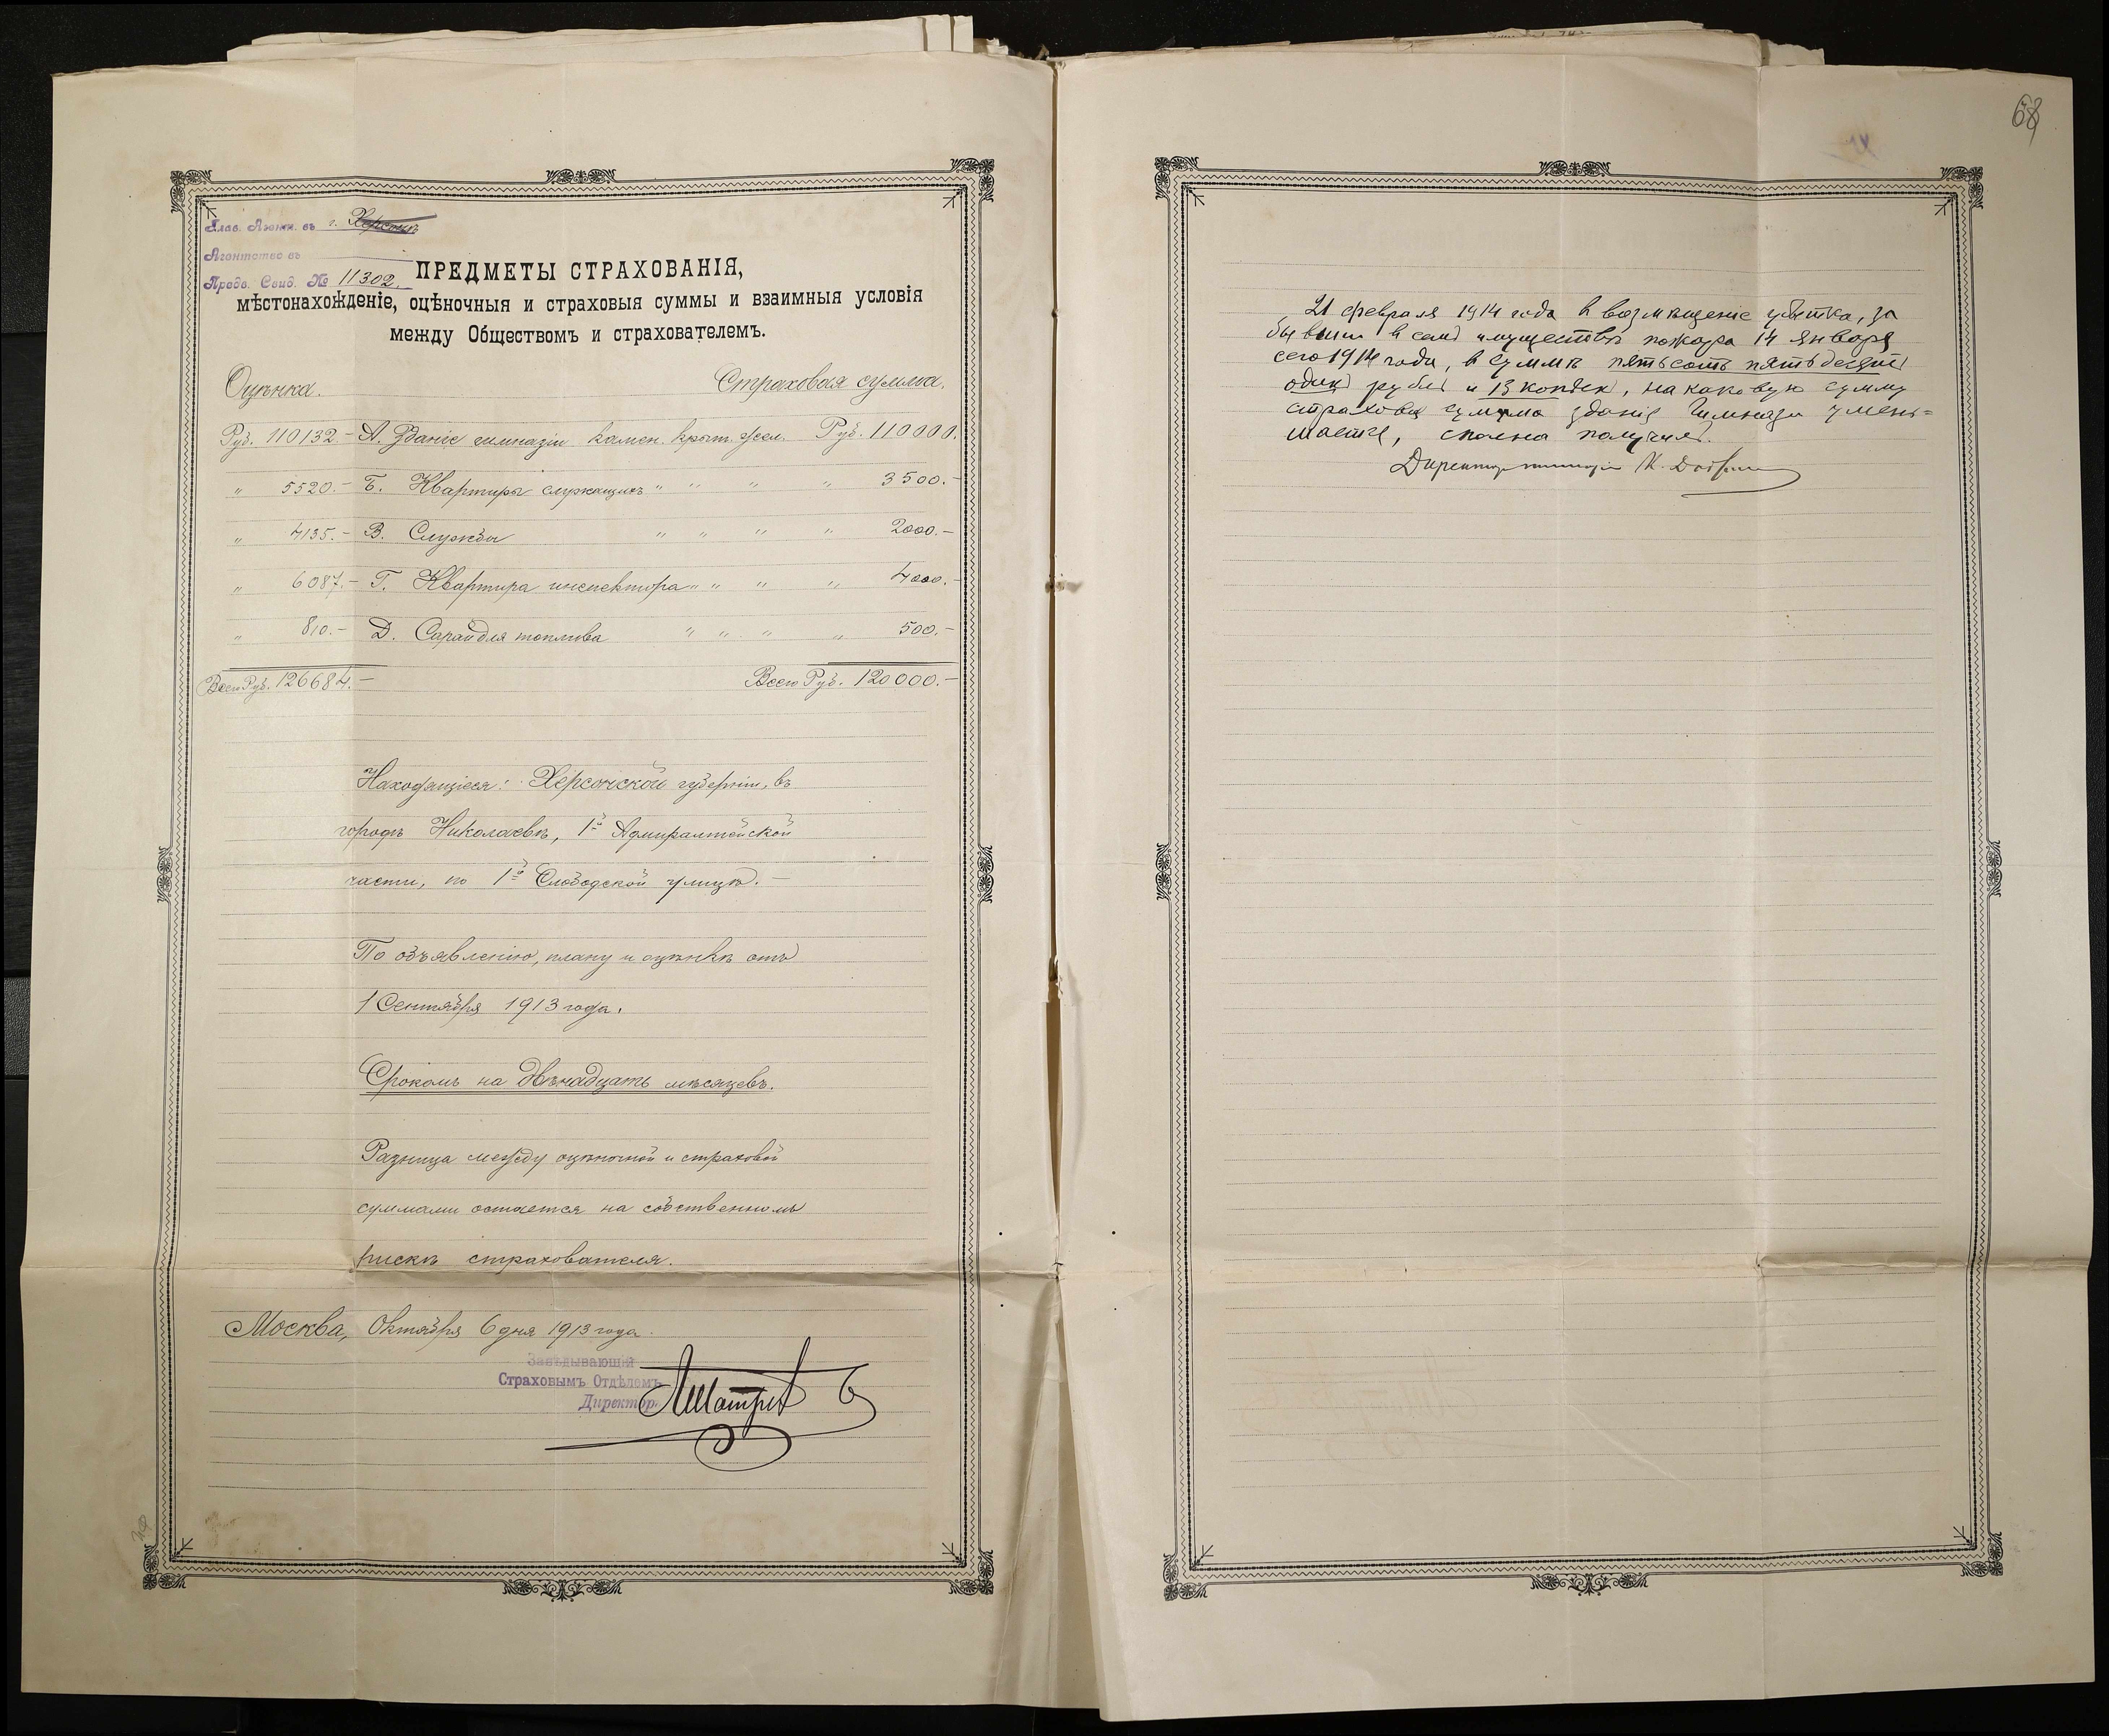 Глав. Агент. въ г. Херсонъ
Агентство въ
Предв. Свид. № 11302.
ПРЕДМЕТЫ СТРАХОВАНІЯ,
мѣстонахожденіе, оцѣночныя и страховыя суммы и взаимныя условія
между Обществомъ и страхователемъ.
Оцѣнка. Страховая сумма.
Руб. 110132.– А. Зданіе гимназіи камен. крыт. жел. Руб. 110000.
" 5520.– Б. Квартиры служащихъ " " " " 3500.–
" 4135.– В. Службы " " " " 2000.–
" 6087.– Г. Квартира инспектора " " " " 4000.–
" 810.– Д. Сарай для топлива " " " " 500.–
Всего Руб. 126684.– Всего Руб. 120000.–
Находящіеся: Херсонской губерніи, въ
городѣ Николаевѣ, 1й Адмиралтейской
части, по 1й Слободской улицѣ.–
По объявленію, плану и оцѣнкѣ отъ
1 Сентября 1913 года.
Срокомъ на двѣнадцать мѣсяцевъ.
Разница между оцѣночной и страховой
суммами остается на собственномъ
рискѣ страхователя.
Москва, Октября 6 дня 1913 года.
Завѣдывающій
Страховымъ Отдѣломъ
Директор
68
21 февраля 1914 года в возмѣщеніе убытка, за
бывшій в сем имуществѣ пожара 14 января
сего 1914 года, в суммѣ пятьсотъ пятьдесят
один рубль и 13 копѣек, на каковую сумму
страховая сумма зданія Гимназіи умень=
шается, сполна получил.
Директор гимназіи К.